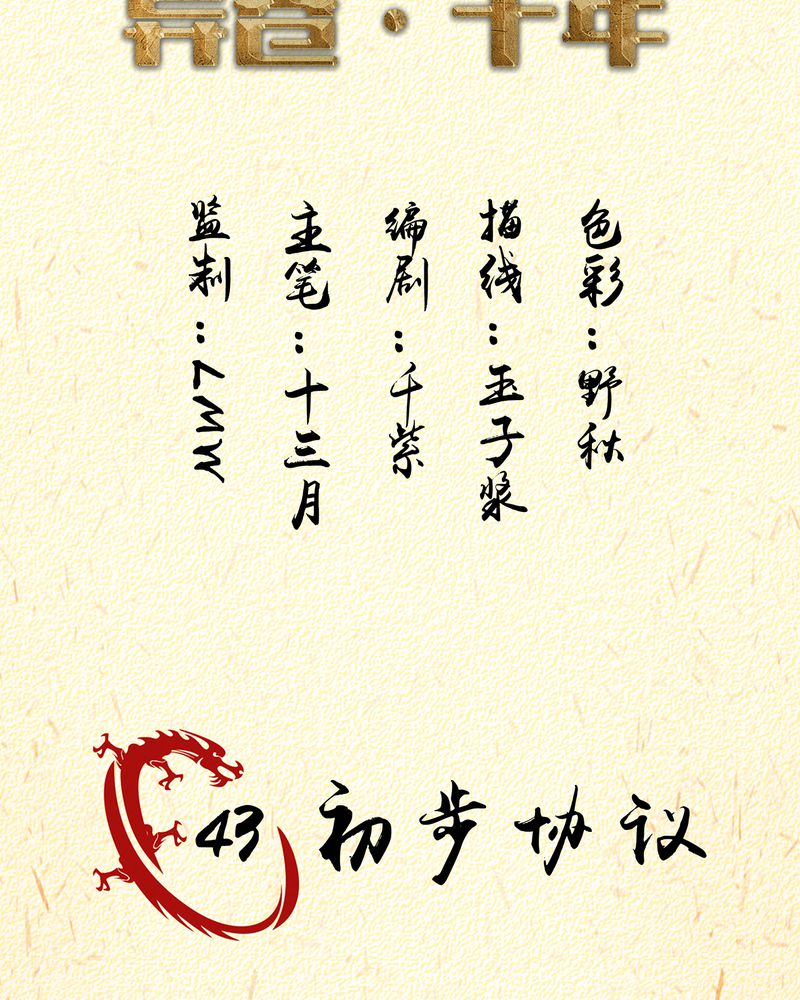 监制：MW7
主笔：十三月
编剧：千紫
描线：玉子浆
色彩：野秋
43 初步协议